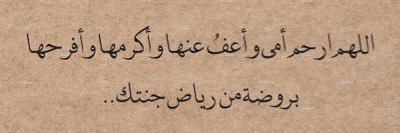 اللهم ارحم أمي وأعفُ عنها وأكرمها وأفرحها
بروضة من رياض جنتك..